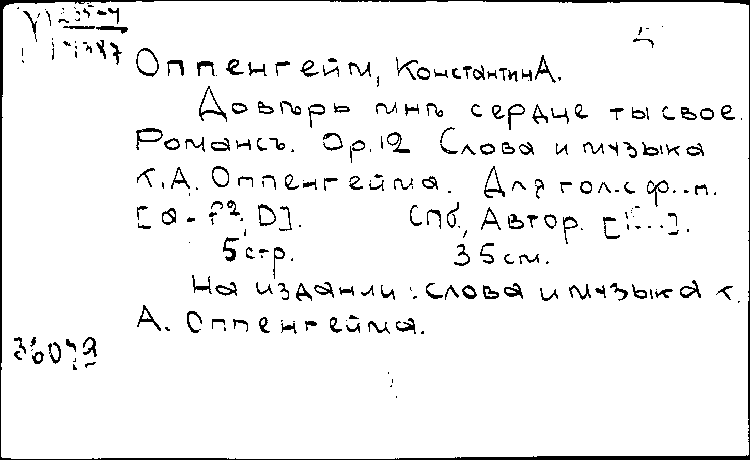 Д
Оппенгейм, Константин А.
Довѣрь мнѣ сердце ты свое.
Романсъ. Ор.12 Слова и музыка
К.А. Оппенгейма. Для гол. с ф.-п.
[a-f², D]. Спб, Автор.
5 стр. 35 см.
На издании: слова и музыка К.
А. Оппенгейма.